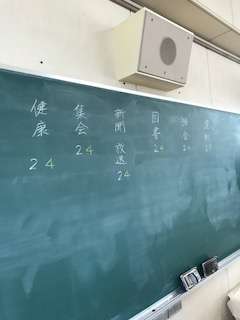 24
図書
24
新聞
放送
24
集会
24
健康
24